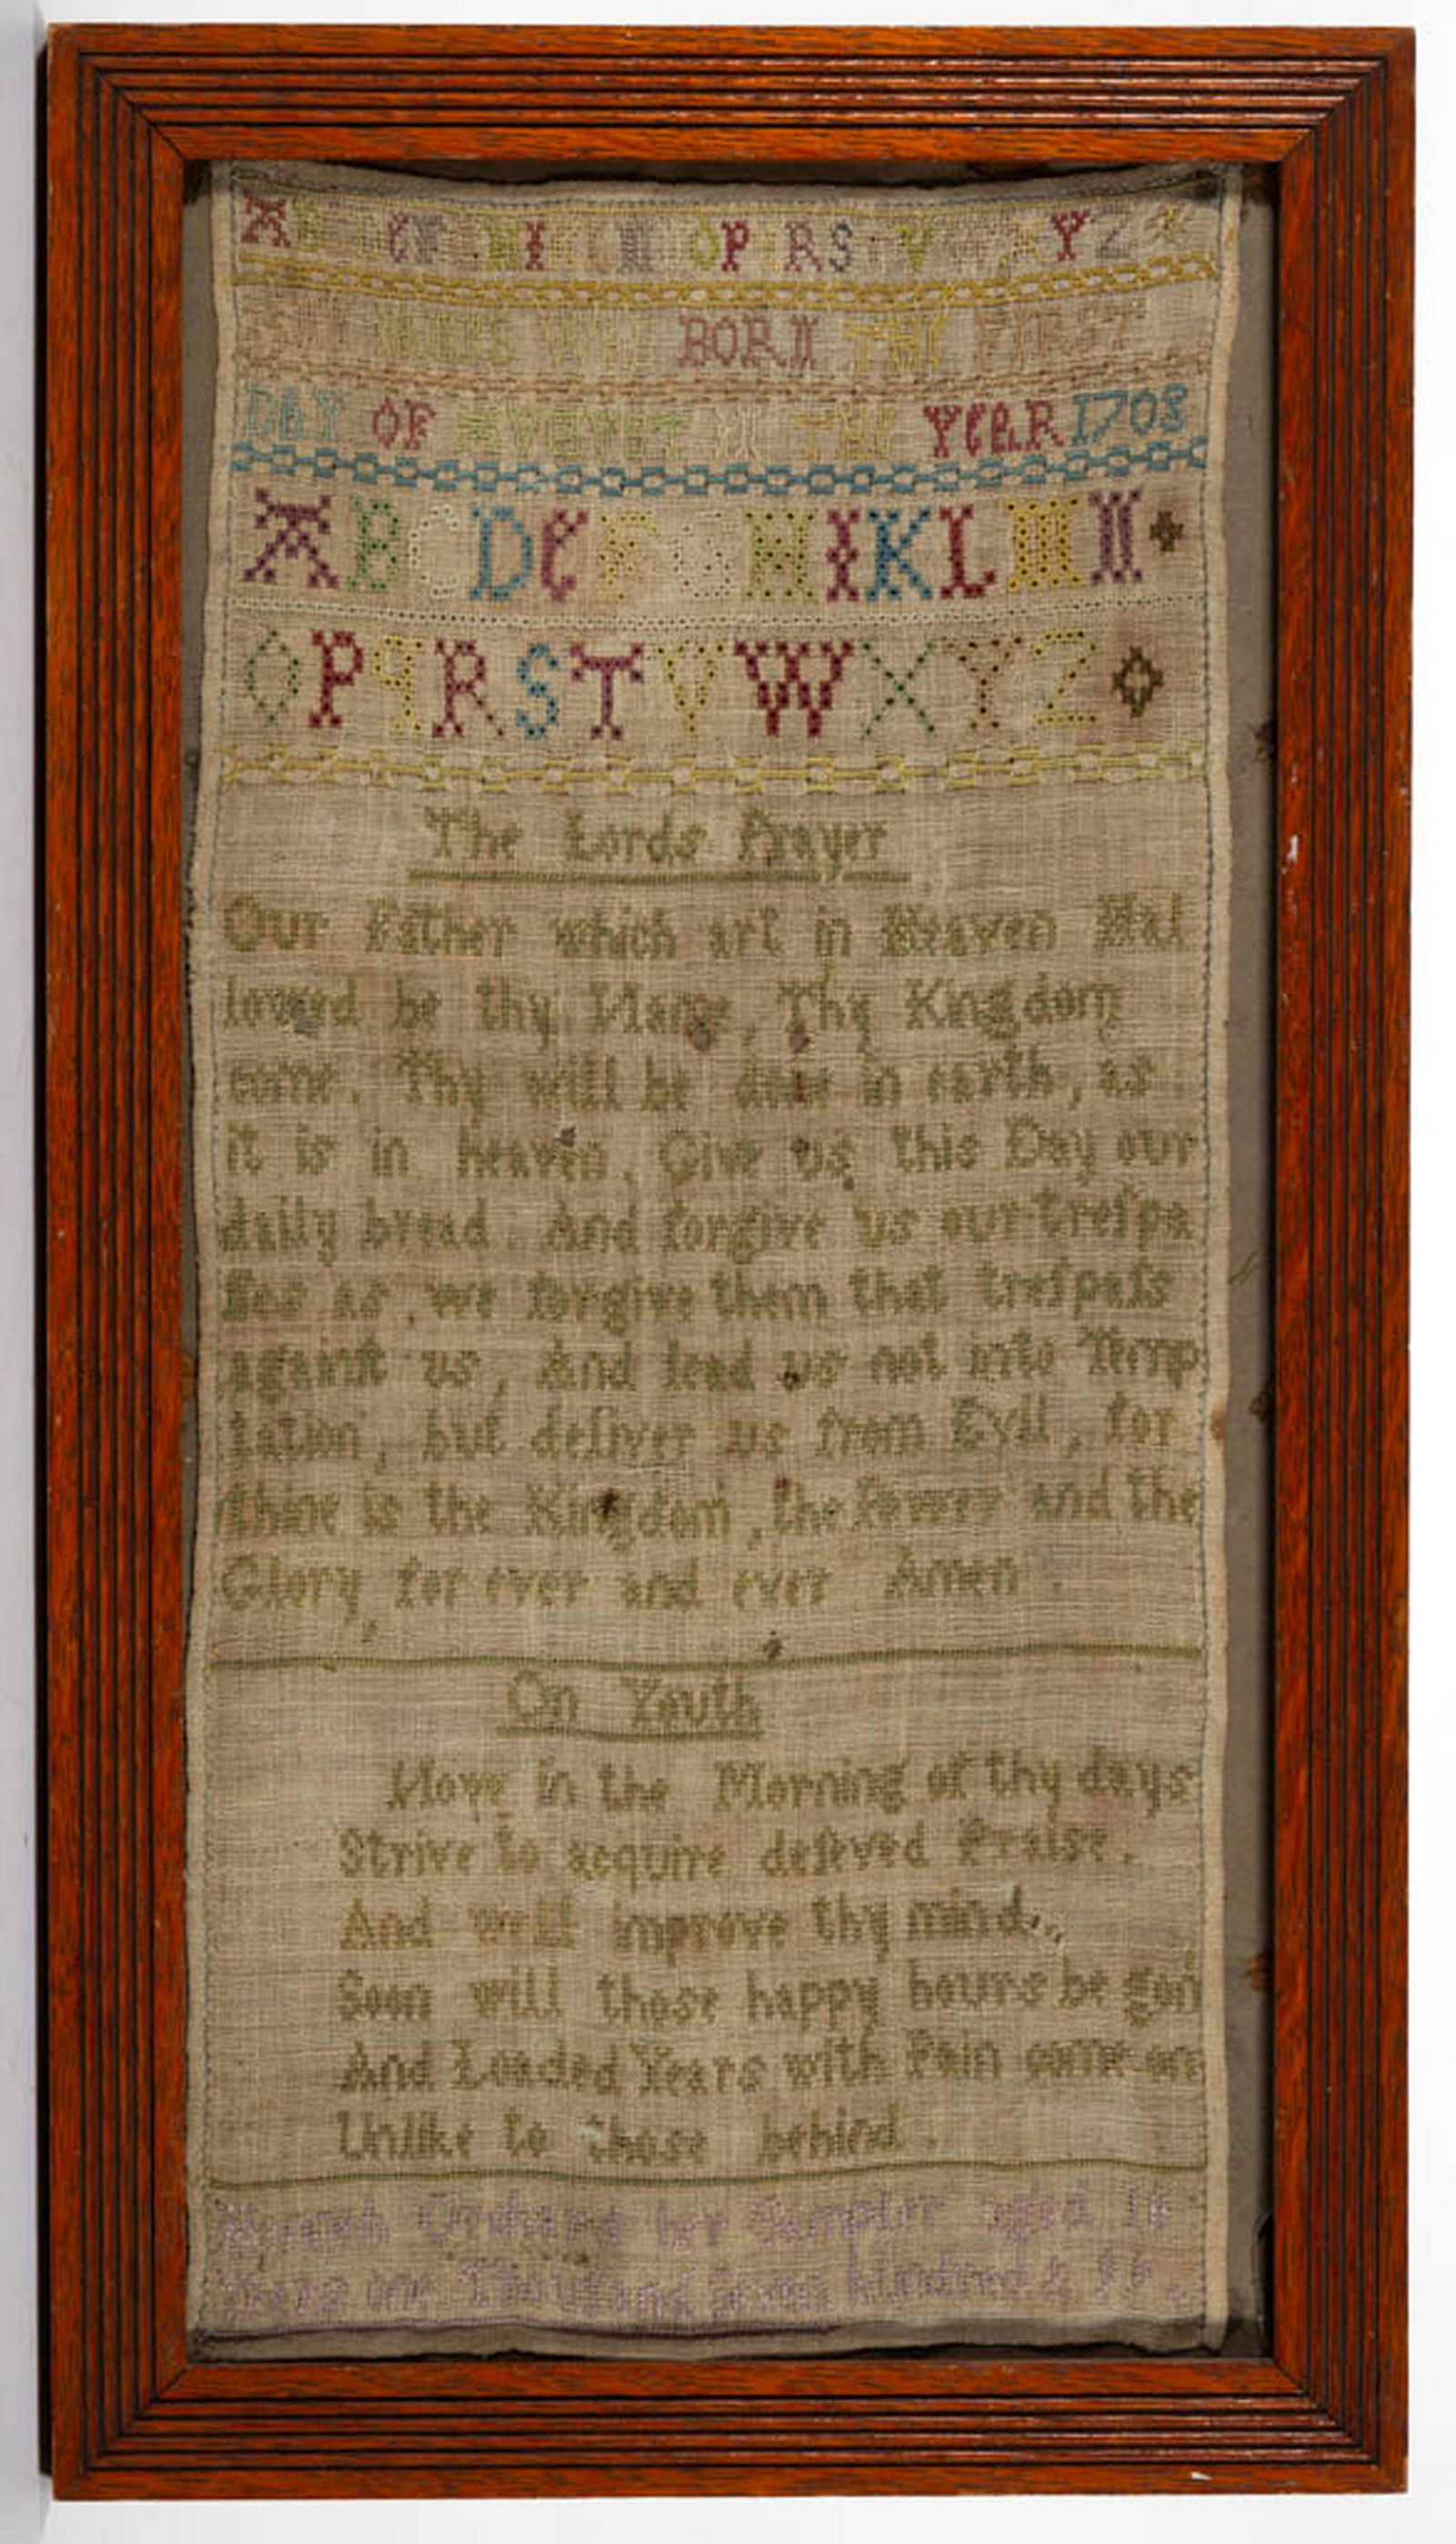 A C F H I N O P R S V Y Z
WAS BORN THE FIRST
DAY OF AVGVST IN THE YEAR 1708
A B C D E F G H I K L M N
O P q R S T V W X Y Z
The Lords Prayer
Our Father which art in Heaven Hal
lowed be thy Name, Thy Kingdom
come. Thy will be done in earth, as
it is in heaven, Give us this Day our
daily bread. And forgive us our treſpa
ſses as we forgive them that treſpaſs
against us, And lead us not into Temp
tation, but deliver us from Evil, for
thine is the Kingdom, the Power and the
Glory, for ever and ever Amen.
On Youth
Move in the Morning of thy days
Strive to acquire deſerved Praise.
And well improve thy mind..
Soon will those happy hours be gon
And Loaded Years with Pain come on
Unlike to those behind.
Hannah Orchard her Sampler aged
Years one Thouſand Seven hundred &